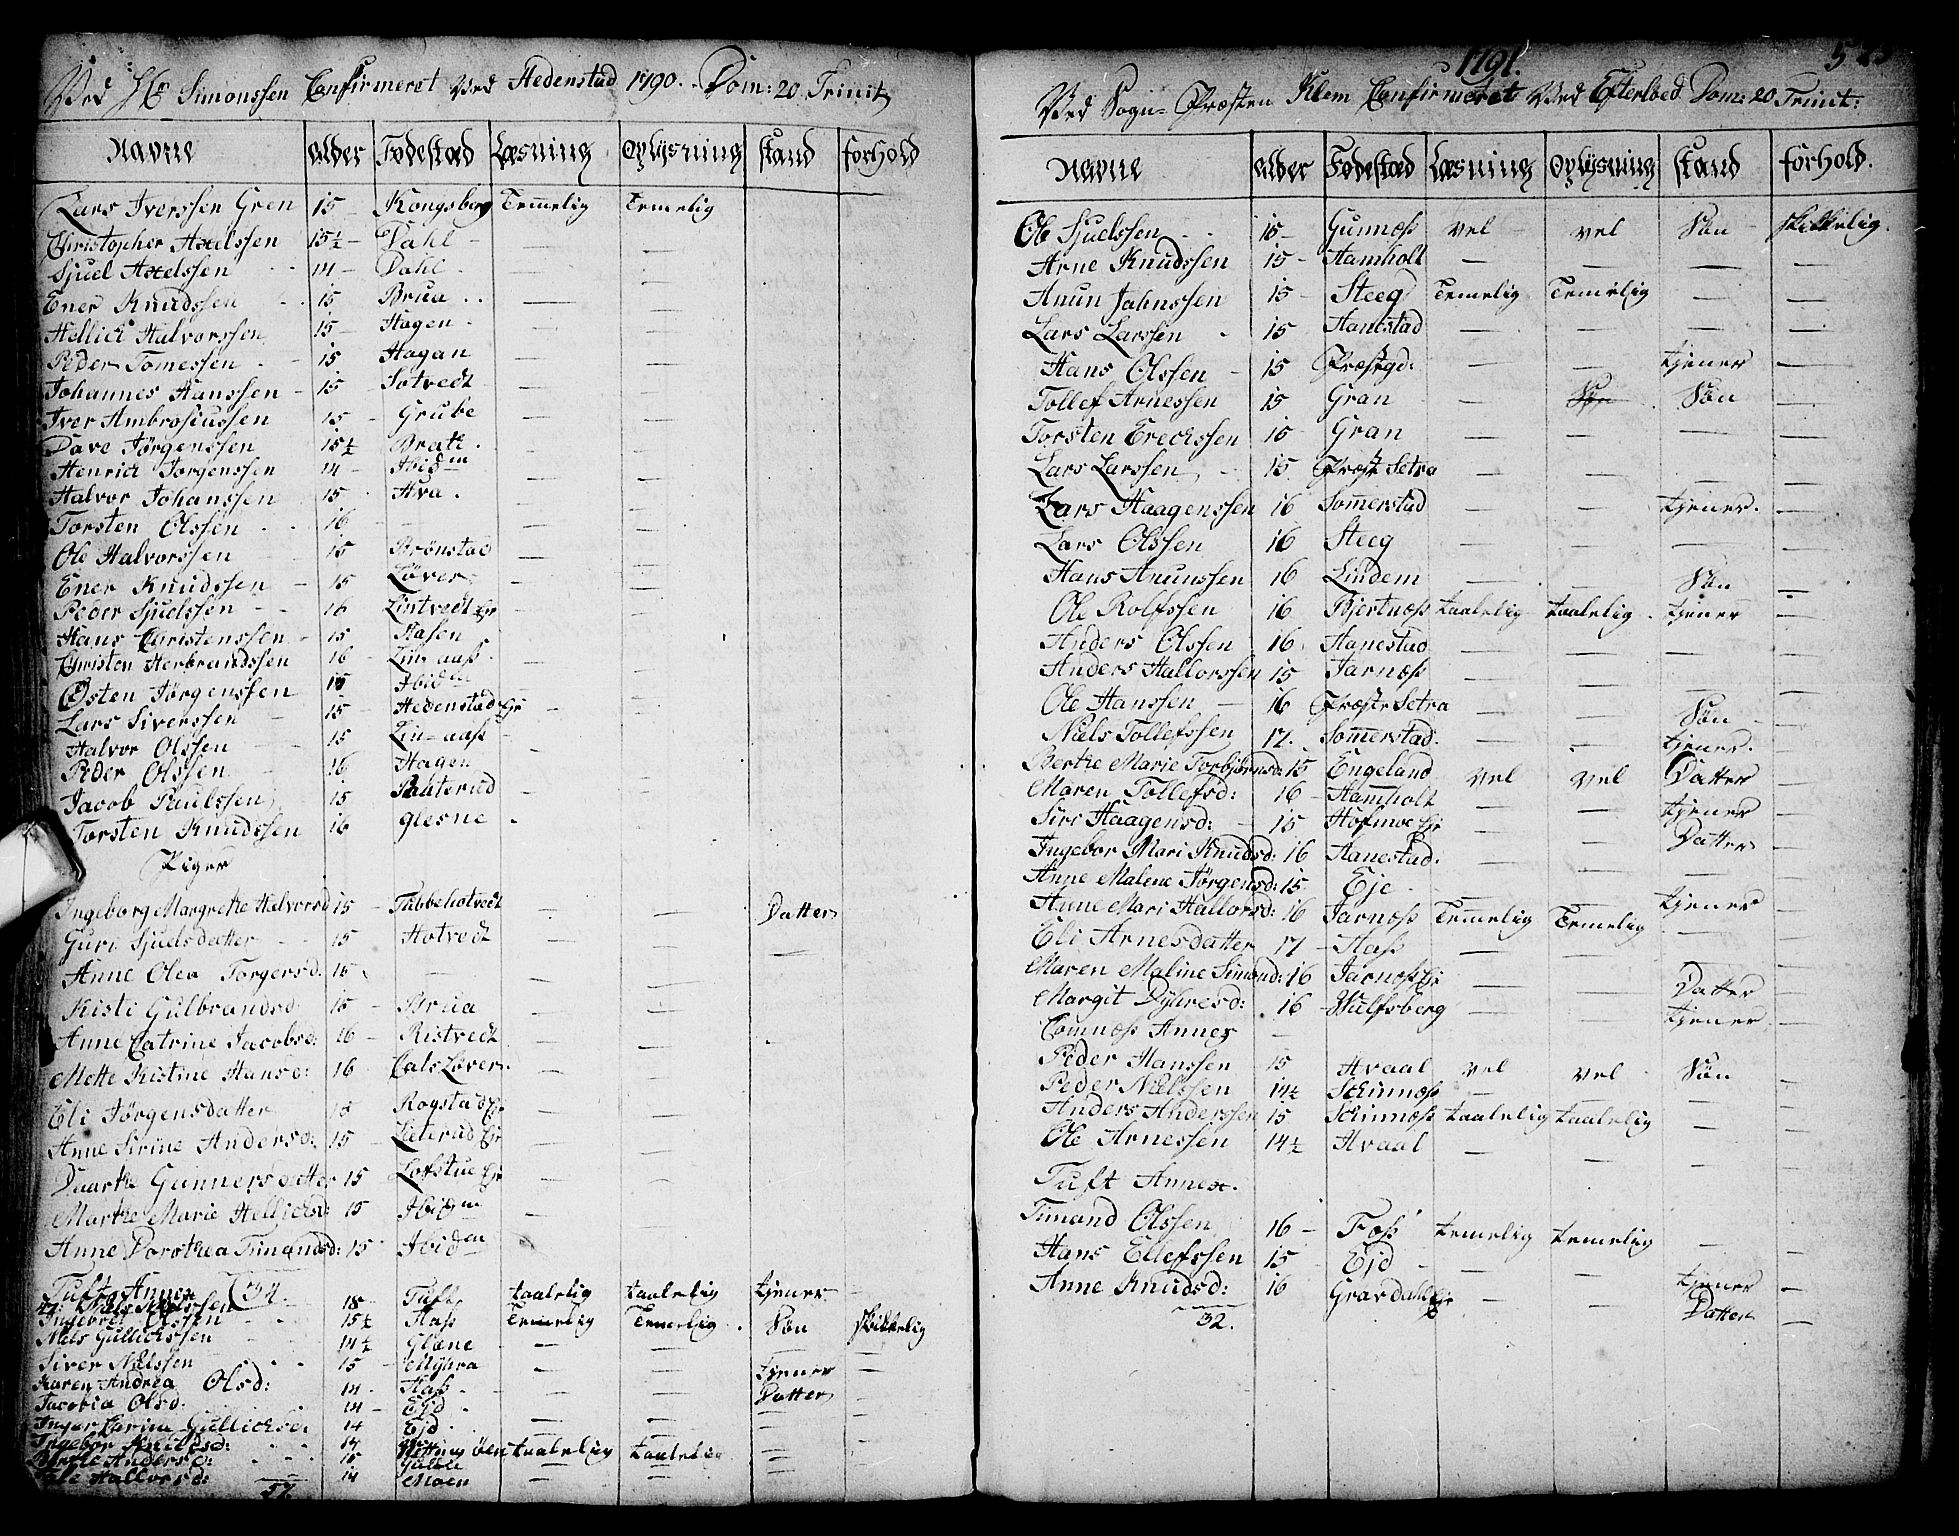 Ved Hr Simonssen Confirmeret Ved Hedenstad 1790. Dom: 20 Trinit
Navne alder Fødestæd Læsning Oplysning stand forhold
Lars Iverssen Gren 15 - Kongsberg Temelig Temelig
Christopher Axelssen 15½ - Dahl -
Sjuel Axelssen 14 - Dahl -
Ener Knudssen 15 - Brua
Hellick Halvorssen 15 - Hagen -
Peder Tomessen 15 Hagan
Johannes Hanssen - 15 Sotvedt
Iver Ambrosiussen 15 - Grube
Dave Jørgenssen 15½ Brath
Henrich Jørgenssen 14 - Ibidm
Halvor Johanssen 15 - Hva.
Torsten Olssen 16
Ole Halvorssen 15 Brønstad
Ener Knudssen - 15 Løver
Peder Sjuelssen - 16 Lintvedt Eje
Hans Christenssen - 15 Hasen
Christen Herbrandssen 16 - Lin-aass
Østen Jørgenssen 15 Ibidm
Lars Siverssen 15 - Hedenstad Eje
Halvor Olssen 15 Lin-aass
Peder Olssen 16 Hagen
Jacob Paulssen 15 Pauterud
Torsten Knudssen 16 glesne
Piger
Ingeborg Margrethe Halvorsd 15 - Tubbehotvedt Datter
Guri Sjuelsdatter 15 Hotvedt
Anne Olea Torgersd. 15
Kisti Gulbrandsd: 15 - Brua
Anne Catrine Jacobsd: 16 - Ristvedt
Mette Kistine Hansd: 16 - Cals Løver
Eli Jørgensdatter 15 Rogstad Eje
Anne Sirine Andersd: 15 - Lieterud Eje
Daarthe Gunnersdatter 15 Lofstue Eje
Marthe Marie Hellichsd: 15 Ibidm
Anne Dorothea Timandsd: 15 Ibidm
Tuft Annex (34.
Niels Nielssen 18 - Tuft taalelig taalelig tjener
Ingebret Olssen 15½ Hass Temelig Temelig Søn skikkelig
Niels Gullichssen 14½ Glæne
Siver Nielssen 15 - Myhra tjener
Karen Andrea Olsd: 14 - Hass Datter
Jacobia Olsd 14 - Ejd
Inger Carina Gullichsd: 14 Ejd
Ingebor Knudsd: 14 øen taalelig taalelig
Andersd: 15
Hallvorsd: 14 Moen
57

1791.
Ved Sogne Præsten Klem Confirmeret Ved Efterløed Dom: 20 Trinit:
Navne alder Fødestæd Læsning Oplysning stand forhold.
Ole Sjuelssen 15 - Gunness vel vel Søn skikkelig.
Arne Knudssen 15 - Hamholt
Anun Jahnssen 15 - Steeg Temelig Temelig
Lars Larssen 15 Hanestad
Hans Olssen 15 Præstgd: tjener
Tollef Arnessen 15 Gran Søn Søn
Torsten Erechssen 15 - Gran
Lars Larssen 15 Præste Setra
Lars Haagenssen 16 Somerstad tjener.
Lars Olssen 16 Steeg
Hans Anunssen 16 Lindem Søn
Ole Rolfssen 16 Bjertness taalelig taalelig tjener
Anders Olssen 16 Hanestad
Anders Hallorssen 15 Jarness
Ole Hanssen 16 Præste Setra Søn
Niels Tollefssen 17. Somerstad. tjener.
Berthe Marie Torbjørnsd: 15 Engeland vel vel Datter
Maren Tollefsd: 16 - Hamholt tjener
Siri Haagensd: 15 Hofmoe Eje Datter
Ingebor Mari Knudsd: 16 Aanestad.
Anne Malene Jørgensd: 15 Eje
Anne Mari Hallorsd: 16 Jarness Temelig Temelig tjener
Eli Arnesdatter 17 - Hass
Maren Maline Simond: 16 Jarness Eje Datter
Margit Dyhresd: 16 - Wulfsberg tjener
Comness Annex
Peder Hanssen 15 Hvaal vel vel Søn
Peder Nielssen 14½ Schinness
Anders Anderssen 15 Schinness taalelig taalelig
Ole Arnessen 14½ Hvaal
Tuft Annex.
Timand Olssen 16 - Foss temelig temelig
Hans Ellefssen 15 - Ejd tjener
Anne Knudsd: 16 Gravdahl Eje Datter
32.